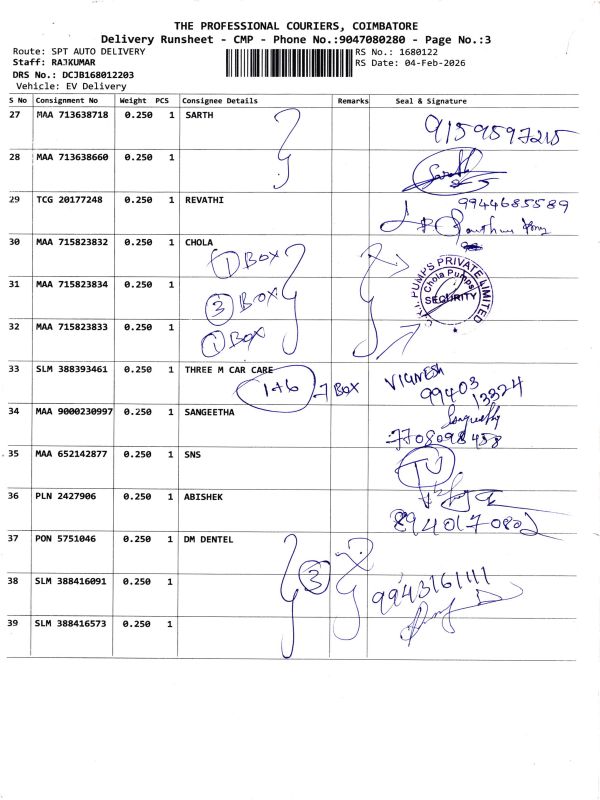 THE PROFESSIONAL COURIERS, COIMBATORE
Delivery Runsheet - CMP - Phone No.:9047080280 - Page No.:3
Route: SPT AUTO DELIVERY RS No.: 1680122
Staff: RAJKUMAR RS Date: 04-Feb-2026
DRS No.: DCJB168012203
Vehicle: EV Delivery
S No Consignment No Weight PCS Consignee Details Remarks Seal & Signature
27 MAA 713638718 0.250 1 SARTH 9159597215
28 MAA 713638660 0.250 1
29 TCG 20177248 0.250 1 REVATHI 9944685589
30 MAA 715823832 0.250 1 CHOLA
1 BOX
31 MAA 715823834 0.250 1
3 BOX
PUMPS PRIVATE LIMITED
Chola Pumps
SECURITY
32 MAA 715823833 0.250 1
1 BOX
33 SLM 388393461 0.250 1 THREE M CAR CARE VIGNESH
1+6 7 BOX 99403
13324
34 MAA 9000230997 0.250 1 SANGEETHA
7708098458
35 MAA 652142877 0.250 1 SNS
36 PLN 2427906 0.250 1 ABISHEK
8940170802
37 PON 5751046 0.250 1 DM DENTEL
3
38 SLM 388416091 0.250 1 9943161111
39 SLM 388416573 0.250 1